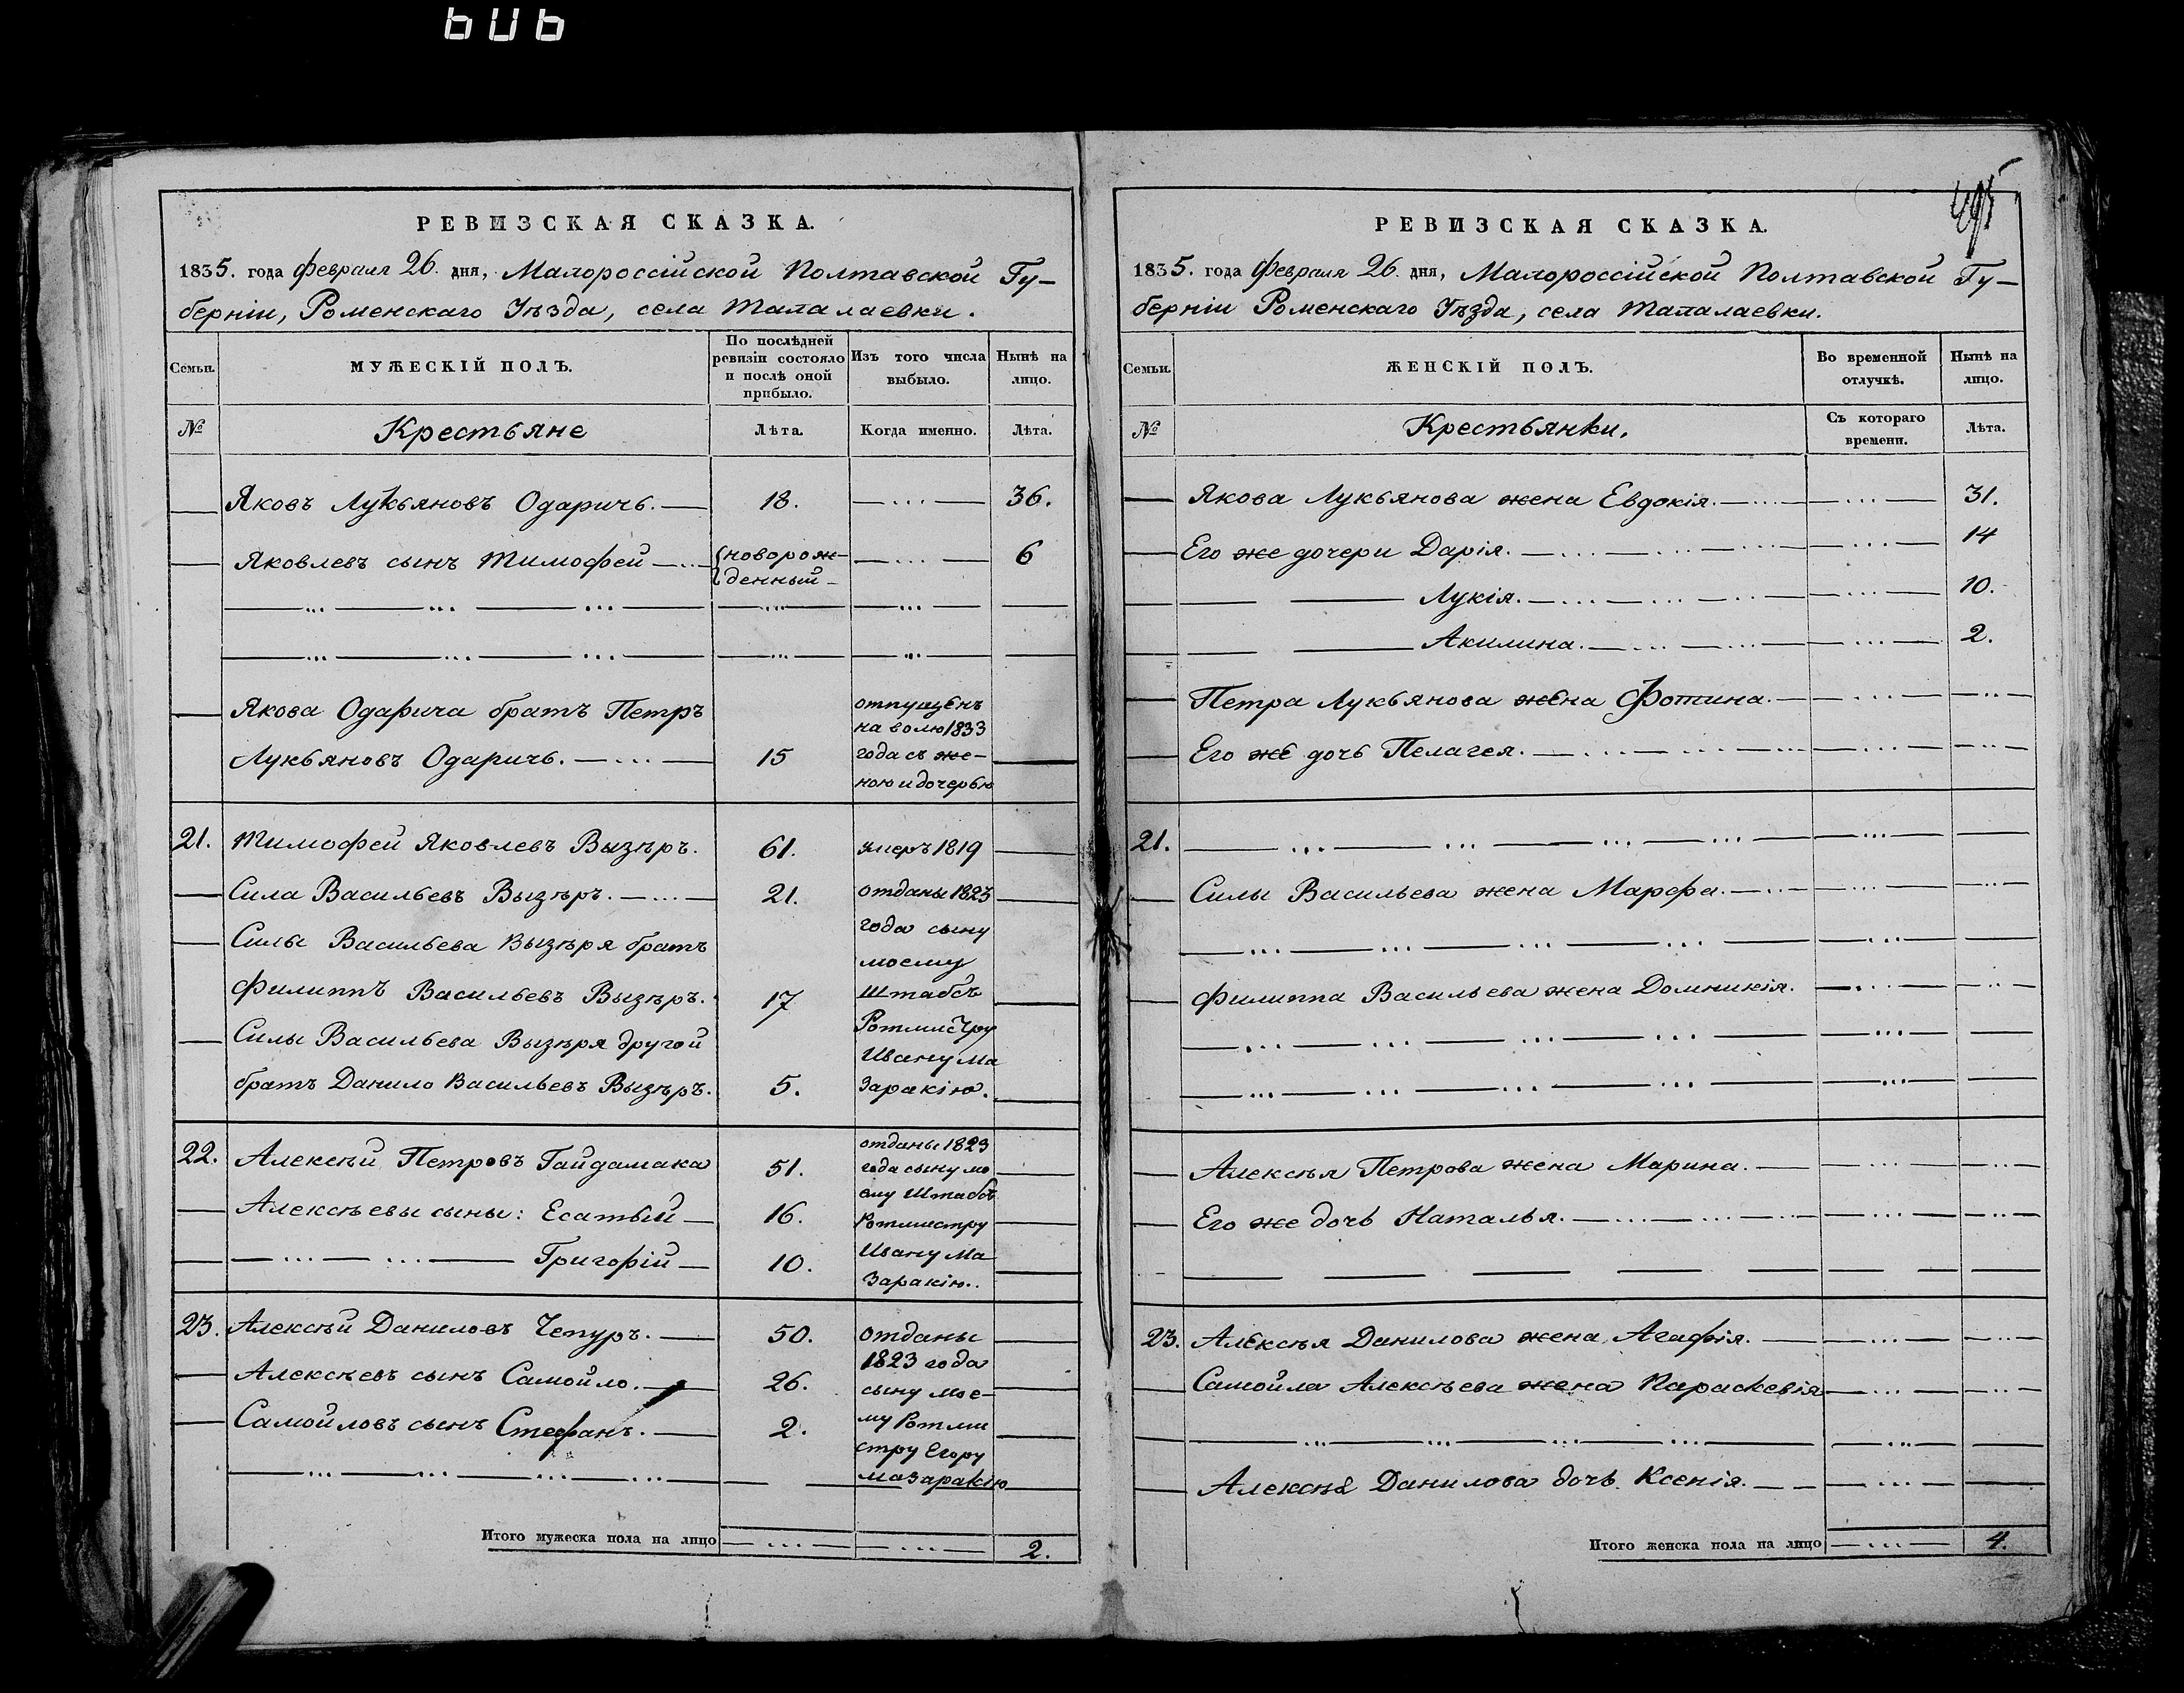 606
РЕВИЗСКАЯ СКАЗКА.
1835. года Февраля 26. дня, Малороссійской Полтавской Гу–
берніи, Роменскаго Уѣзда, села Талалаевки.
Семьи. МУЖЕСКІЙ ПОЛЪ. По послѣдней ревизіи состояло и послѣ оной прибыло. Изъ того числа выбыло. Нынѣ на лицо.
№ Крестьяне Лѣта. Когда именно. Лѣта.
Яковъ Лукьяновъ Одаричь. 18. 36.
Яковлевъ сынъ Тимофей новорож– 6
денный
Якова Одарича братъ Петръ отпущенъ
на волю 1833
Лукьяновъ Одаричь. 15 года съ же–
ною и дочерью
21. Тимофей Яковлевъ Вызѣръ. 61. умеръ 1819
Сила Васильевъ Вызѣръ. 21. отданы 1823
Силы Васильева Вызѣря братъ года сыну
моему
Филиппъ Васильевъ Вызѣръ. 17 Штабсъ
Силы Васильева Вызѣря другой Ротмистру
Ивану Ма
братъ Данило Васильевъ Вызѣръ. 5. заракію.
22. Алексѣй Петровъ Гайдамака 51. отданы 1823
года сыну мо
Алексѣевы сыны: Есатый 16. ему Штабсъ
Ротмистру
Григорій 10. Ивану Ма
заракію.
23. Алексѣй Даниловъ Чепуръ. 50. отданы
1823 года
Алексѣевъ сынъ Самойло. 26. сыну мое–
Самойловъ сынъ Стефанъ. 2. му Ротми
стру Егору
Мазаракію
Итого мужеска пола на лицо 2.
495
РЕВИЗСКАЯ СКАЗКА.
1835. года Февраля 26. дня, Малороссійской Полтавской Гу–
берніи Роменскаго Уѣзда, села Талалаевки.
Семьи. ЖЕНСКІЙ ПОЛЪ. Во временной отлучкѣ. Нынѣ на лицо.
№ Крестьянки. Съ котораго времени. Лѣта.
Якова Лукьянова жена Евдокія. 31.
Его же дочери Дарія. 14
Лукія. 10.
Акилина. 2.
Петра Лукьянова жена Фотина.
Его же дочь Пелагея.
21.
Силы Васильева жена Марфа.
Филиппа Васильева жена Домникія.
Алексѣя Петрова жена Марина.
Его же дочь Наталья.
23. Алексѣя Данилова жена Агафія.
Самойла Алексѣева жена Параскевія
Алексѣя Данилова дочь Ксенія.
Итого женска пола на лицо 4.